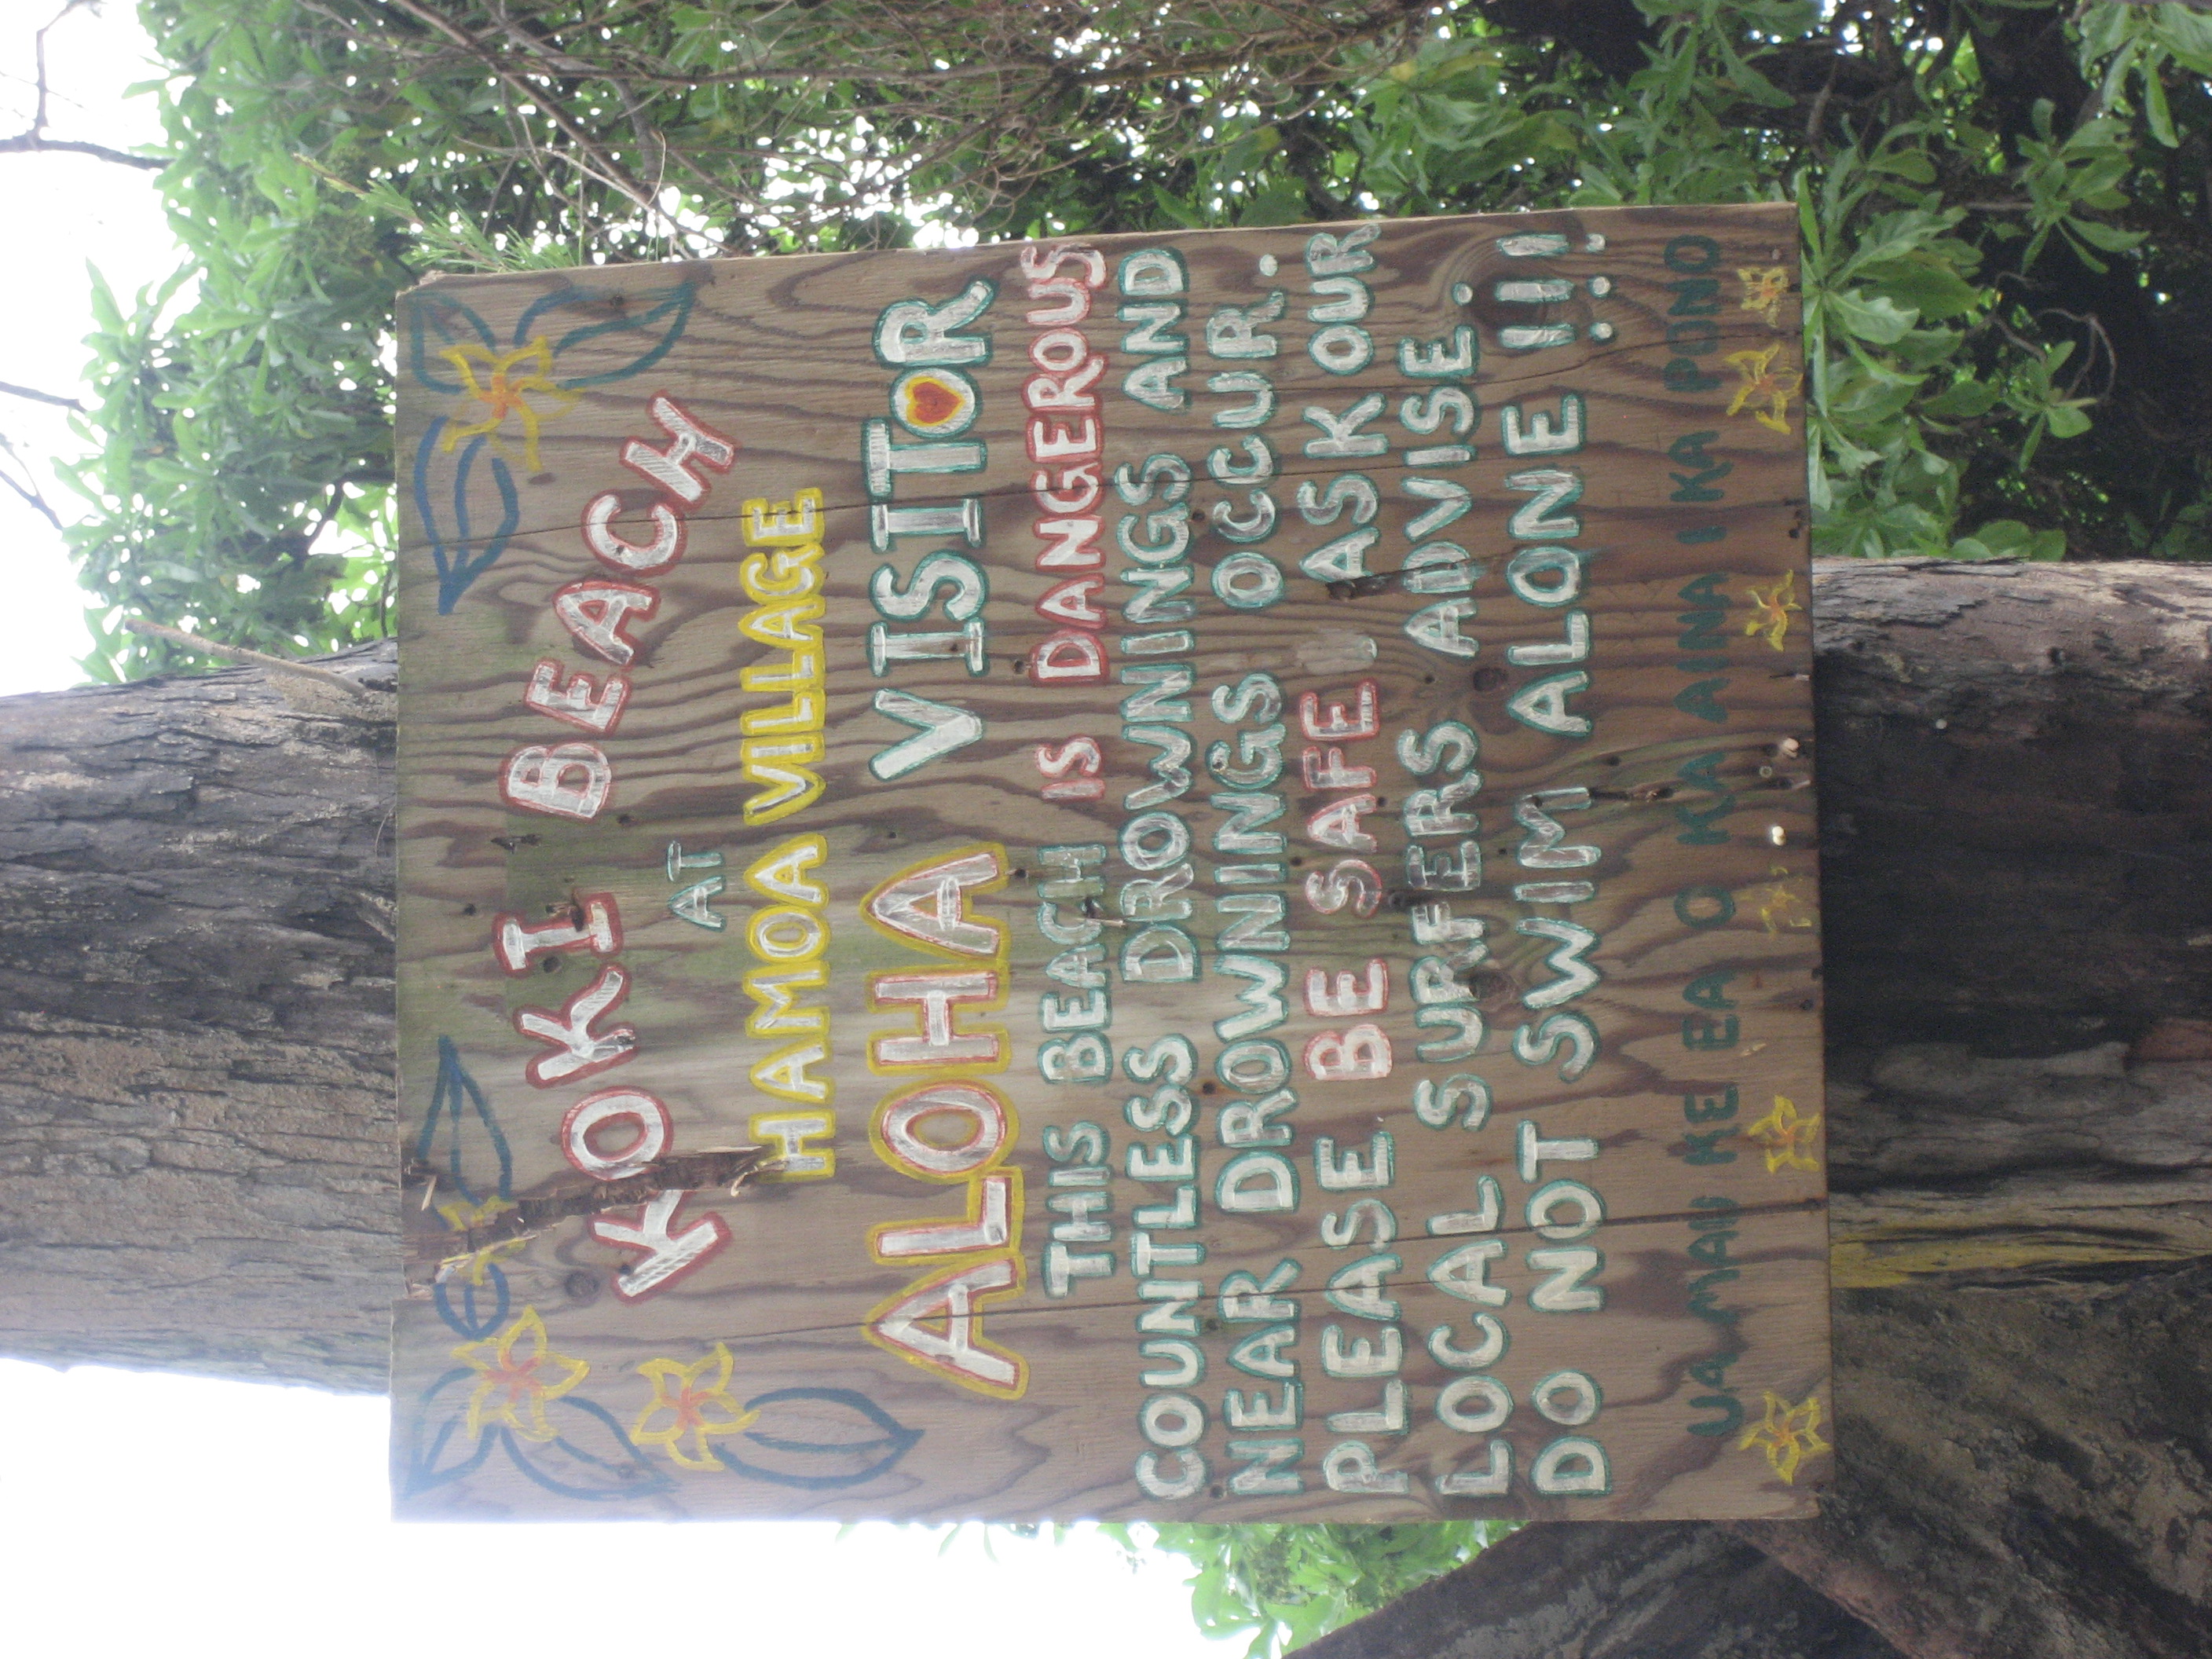 KOKI BEACH
AT
HAMOA VILLAGE
ALOHA VISITOR
THIS BEACH IS DANGEROUS
COUNTLESS DROWNINGS AND
NEAR DROWNINGS OCCUR.
PLEASE BE SAFE ASK OUR
LOCAL SURFERS ADVISE.
DO NOT SWIM ALONE!!!
UA MAU KE EA O KA AINA I KA PONO